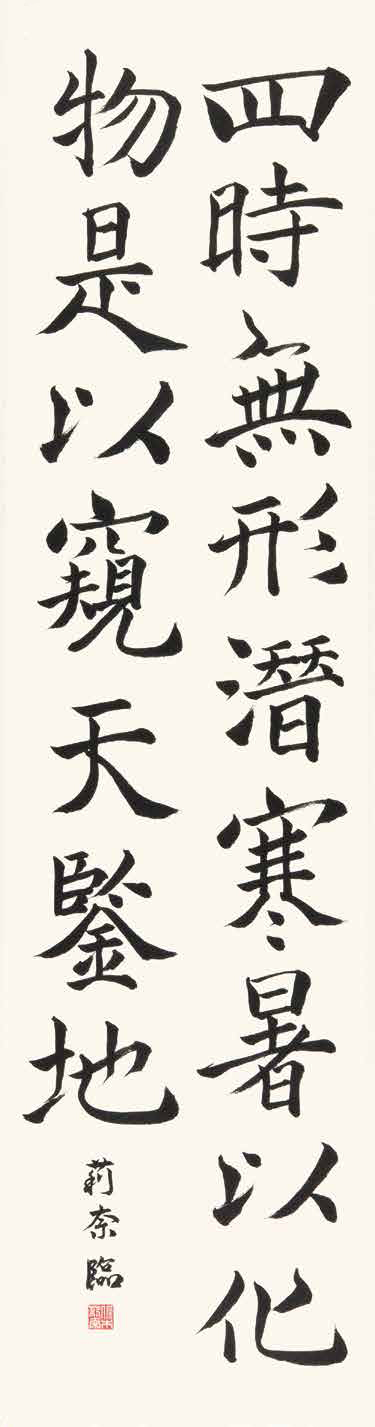 四時無形潛寒暑以化
物是以窺天鑒地
莉奈臨